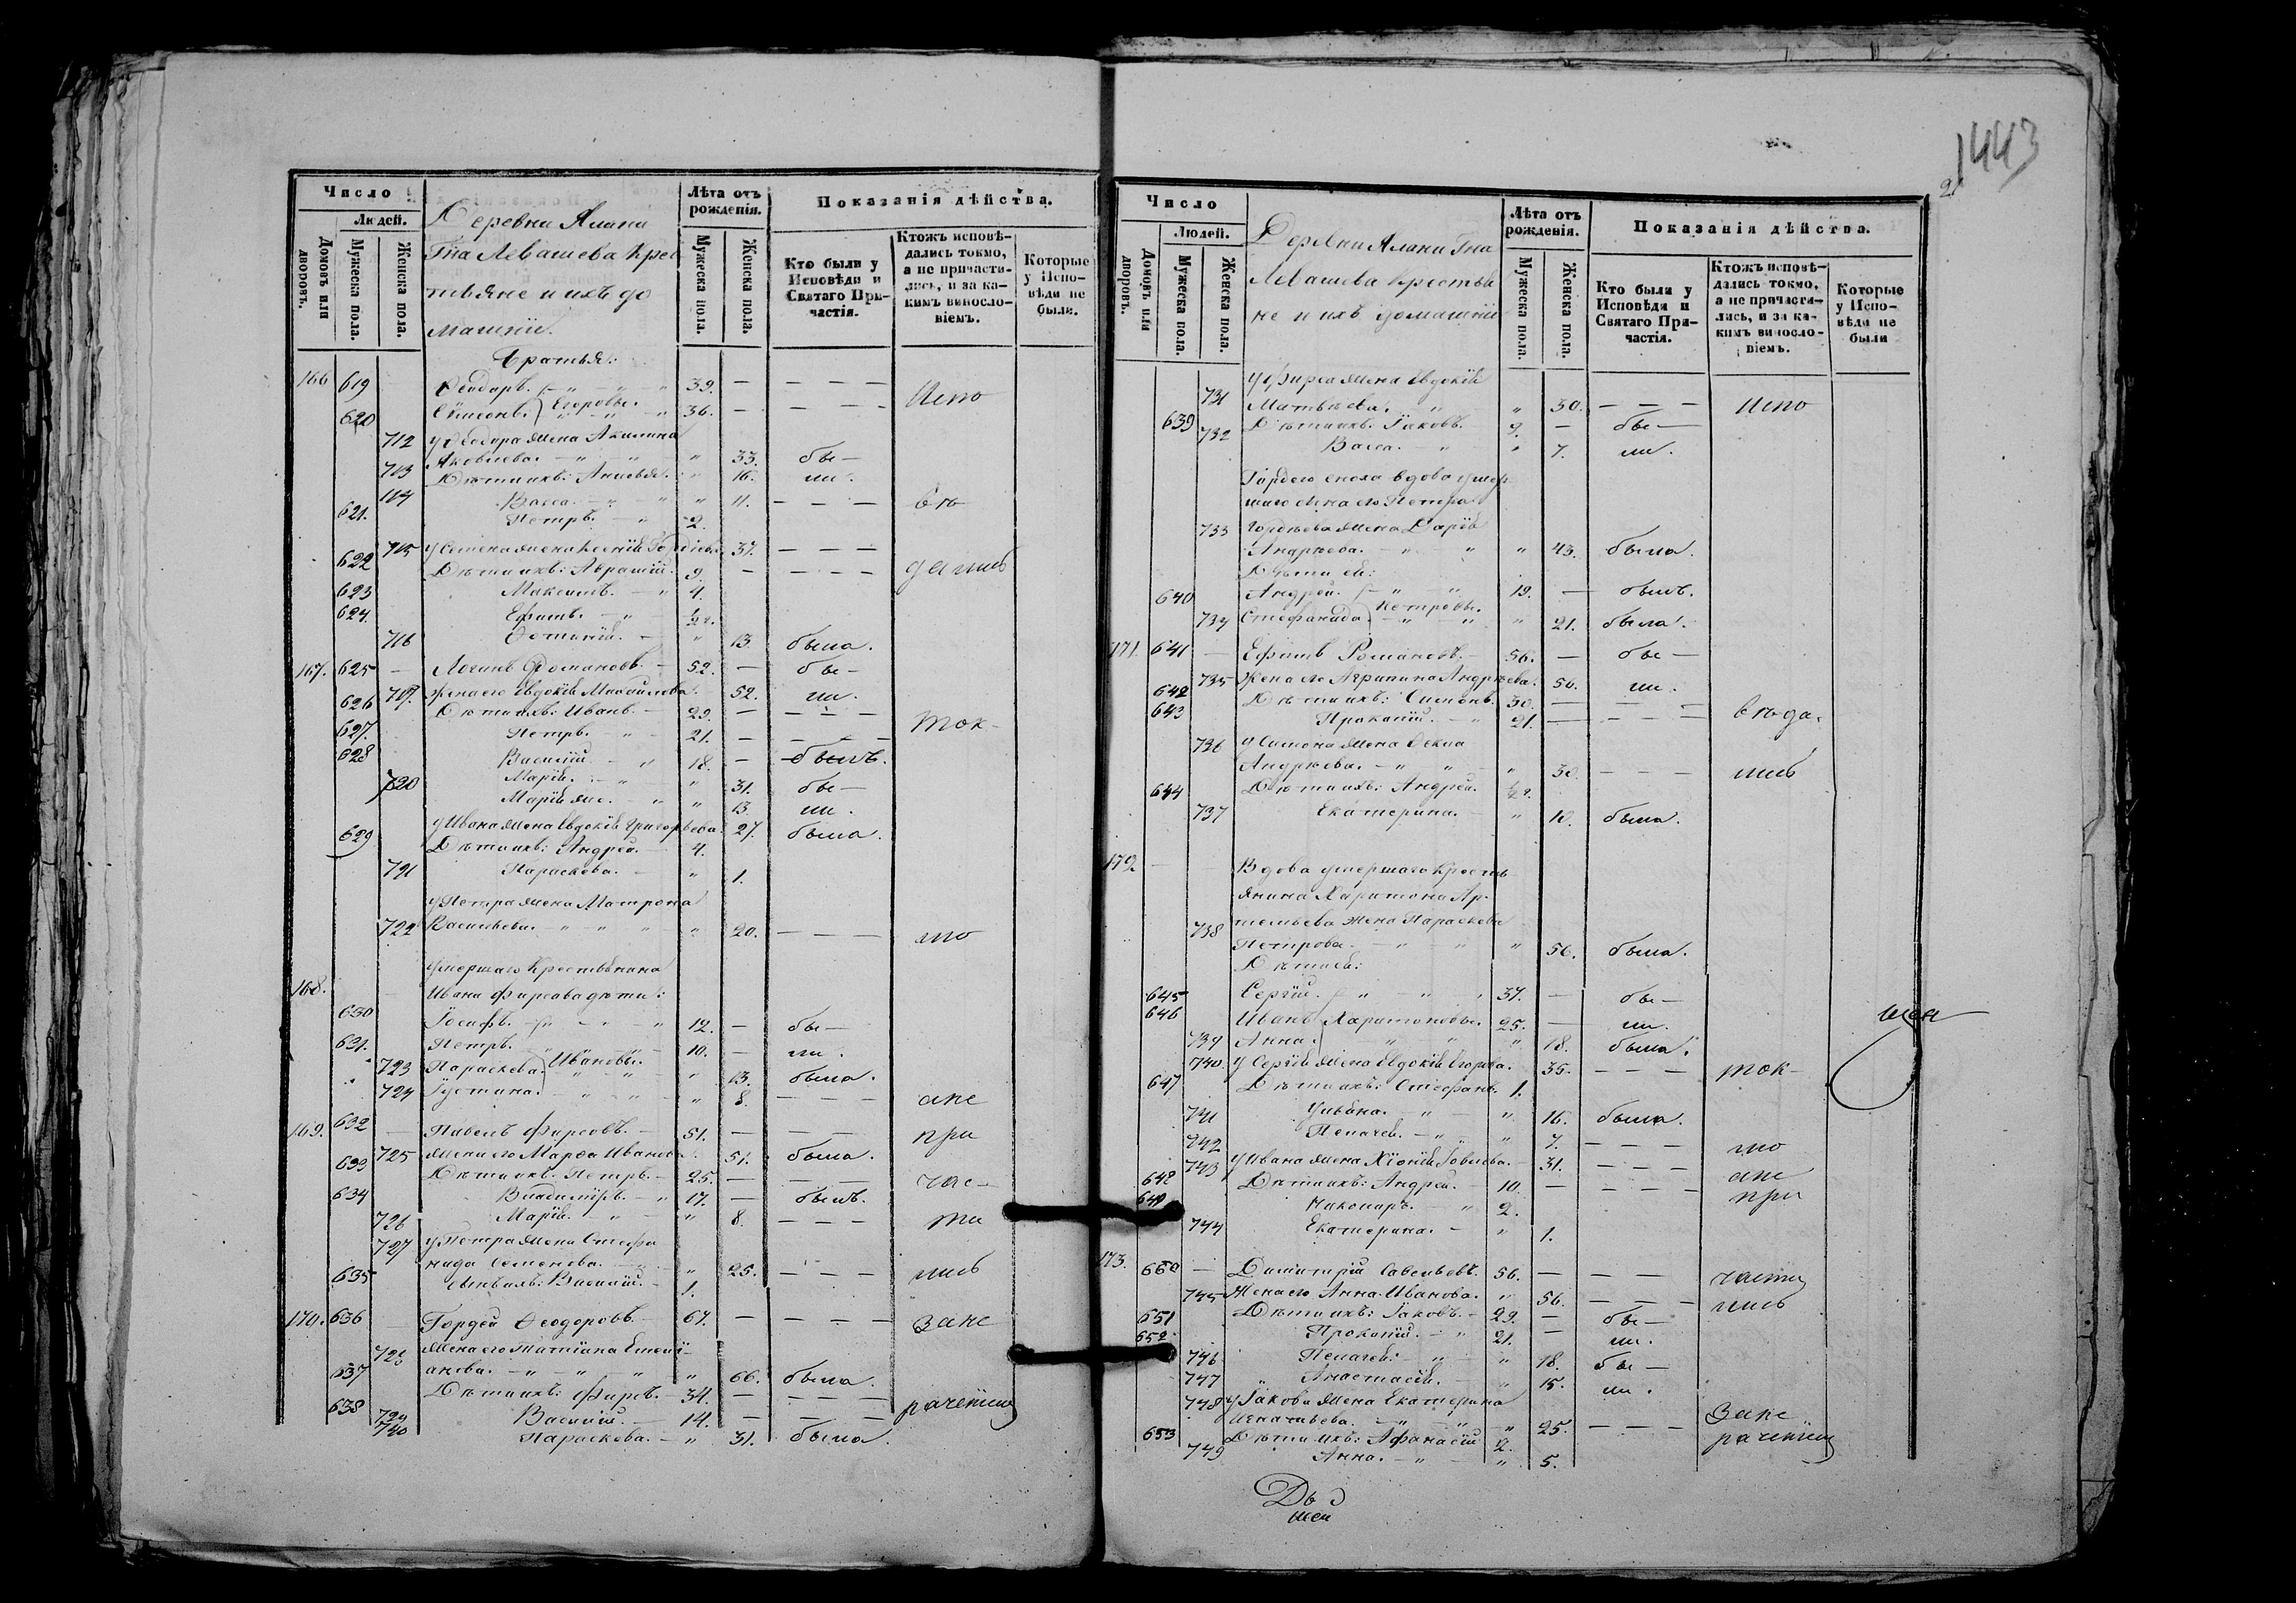 1443
2
Число
Людей.
Домовъ или дворовъ.
Мужеска пола.
Женска пола.
Деревни Алани
Гна Левашева Крес
тьяне и ихъ до
машніи.
Лѣта отъ рожденія.
Мужеска пола.
Женска пола.
Показанія дѣйства.
Кто были у Исповѣди и Святаго При-частія.
Ктожъ исповѣ-дались токмо, а не причасти-лись, и за ка-кимъ винословіемъ.
Которые у Испо-вѣди не были.
братья:
166 619 Ѳеодоръ. 39. — — — —
620 Сѵмеонъ. Егоровы. 36. — — — — Испо
712 у Ѳеодора жена Акилина
Яковлева. — " — " 33. бы —
713 Дѣти ихъ: Анисья. " 16. ли.
714 Васса. — " " 11. — — — вѣ
621. Петръ. — " 2.
715 у Семена жена Ксенія Гордѣева 37. — — —
622 Дѣти ихъ: Аврамій. 9. — — — — дались
623 Максимъ. — " 4.
624. Ефимъ. — " 1/2.
716 Ѳетинія. — " 13. была.
167. 625 — Логинъ Романовъ. — 52. — бы —
717. жена его Евдокія Михайлова. 52. ли.
626 Дѣти ихъ: Иванъ. — 29. — — — —
627. Петръ. — " 21. — — — — ток-
628 Василій. — " 18. — былъ.
720 Марія. — " " 31. бы —
Марія же. — " " 13. ли.
у Ивана жена Евдокія Григорьева. 27. была.
629 Дѣти ихъ: Андрей. — 4.
721 Параскева. — " 1.
у Петра жена Матрона
722 Васильева. — " — " 20. — — — мо
умершаго Крестьянина
168. Ивана Фирсова дѣти:
630 Іосифъ. — " — " 12. — бы —
631. Петръ. — 10. — ли.
723 Параскева. Ивановы. " 13. была.
724 Іустина. — " — " 8. — — — ане
169. 632 — Павелъ Фирсовъ. — 51. — — — — при
725 жена его Марѳа Иванова. 51. была.
633 Дѣти ихъ: Петръ. — 25. — — — — час-
634 Владиміръ. — " 17. — былъ.
726 Марія. — " — " 8. — — — ти
727 у Петра жена Стефа
нида Семенова. — " 25. — — — лись
635 Сынъ ихъ: Василій. — 1.
170. 636 — Гордѣй Ѳеодоровъ. — 67. — — — — зане
728 жена его Татіана Емелі-
анова. — " — " 66. была.
637 Дѣти ихъ: Фирсъ. — 34. — — — —
638 Василій. — 14. — — — — раченіемъ
Параскева. — " 31. была.
Число
Людей.
Домовъ или дворовъ.
Мужеска пола.
Женска пола.
Деревни Алани Гна
Левашева Крестья
не и ихъ домашніи
Лѣта отъ рожденія.
Мужеска пола.
Женска пола.
Показанія дѣйства.
Кто были у Исповѣди и Святаго При-частія.
Ктожъ исповѣ-дались токмо, а не причасти-лись, и за ка-кимъ винословіемъ.
Которые у Испо-вѣди не были
у Фирса жена Евдокія
731 Матвѣева. — " " 30. — — — Испо
639 Дѣти ихъ: Іаковъ. 9. — бы —
732 Васса. — " " 7. ли.
Гордѣя сноха вдова умер
шаго сына его Петра
733 Гордѣева жена Дарія
Андрѣева. — " " 43. была.
Дѣти ея:
640 Андрей. — " 19. — былъ.
734 Стефанида Петровы. " 21. была.
171. 641 — Ефимъ Романовъ. — 56. — бы —
735 жена его Агрипина Андрѣева. 50. ли.
642 Дѣти ихъ: Симонъ. 30. — — — —
643 Прокопій. — " 21. — — — — вѣда
736 у Симона жена Ѳекла
Андрѣева. — " — " 30. — — — лись
644 Дѣти ихъ: Андрей. 1/2.
737 Екатерина. — " 10. была.
172. — Вдова умершаго Кресть
янина Харитона Ар-
738 темьева жена Параскева
Петрова. — " " 56. была.
Дѣти ея:
645 Сергій. — " — 37. — бы —
646 Иванъ. Харитоновы. 25. — ли.
739 Анна. " 18. была.
740 у Сергія жена Евдокія Егорова. 35. — — — ток-
647 Дѣти ихъ: Стефанъ. 1.
741 Ульяна. — " " 16. была.
742 Пелагея. — " " 7. — — — мо
743 у Ивана жена Хіонія Іовлева. — 31. — — — ане
648 Дѣти ихъ: Андрей. — 10. — — — — при
649 Никаноръ. — " 2.
744 Екатерина. — " 1.
173. 650 — Димитрій Савельевъ. 56. — — — часты
745 жена его Анна Иванова. " 56. — — — лись
651 Дѣти ихъ: Іаковъ. — 29. — бы —
652. Прокопій. — " 21. — ли.
746 Пелагея. — " — " 18. бы —
747 Анастасія. — " 15. ли.
748 у Іакова жена Екатерина
Игнатьева. — " — " 25. — — — Зане
653 Дѣти ихъ: Афанасій 2. раченіемъ
749 Анна. — " — " 5.